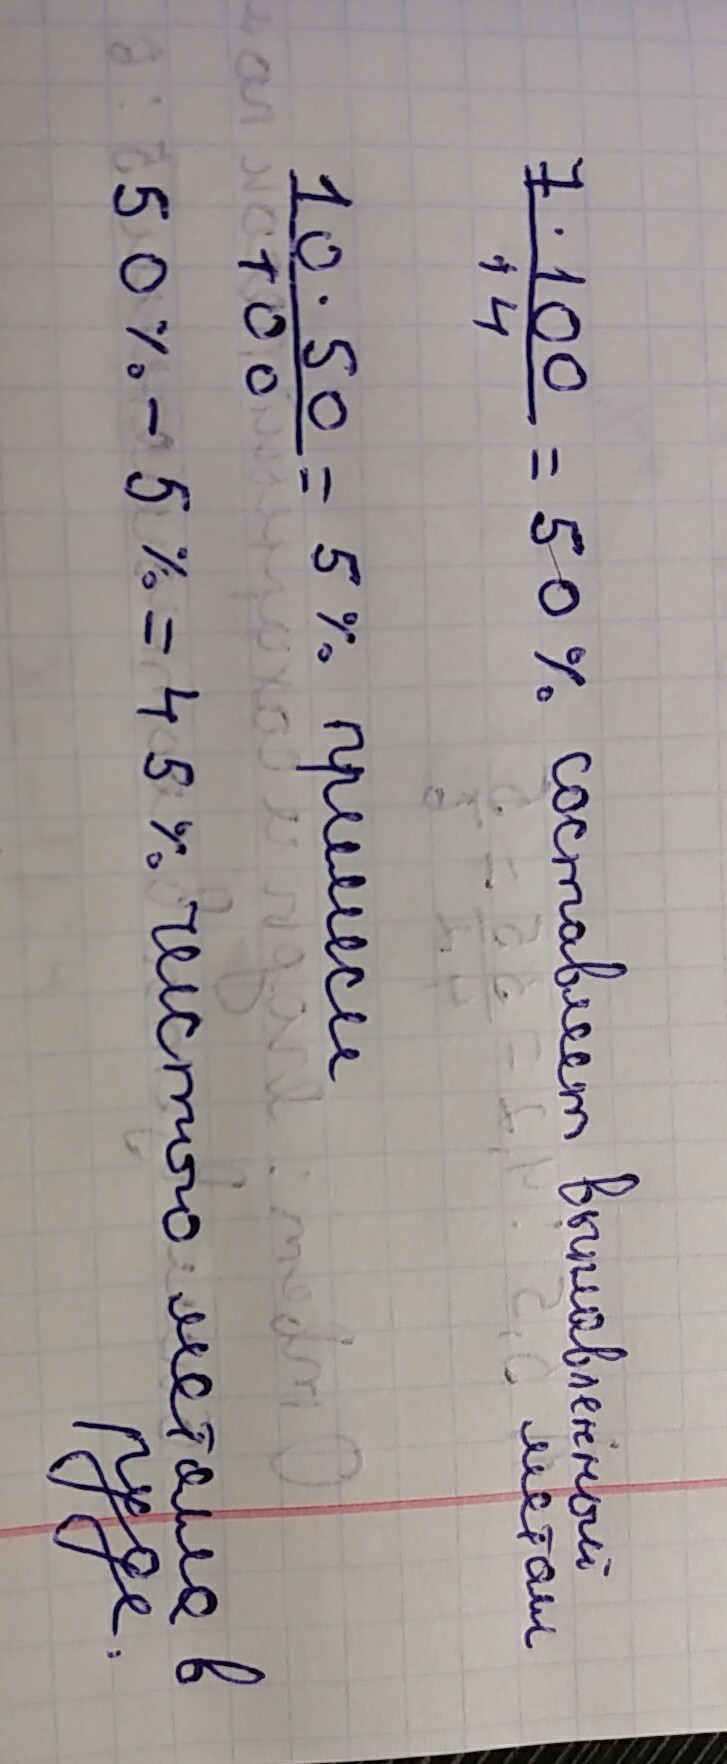 7·100/14 = 50% составляет выплавленный
металл
10·50/100 = 5% примеси
50% - 5% = 45% чистого металла в
руде.